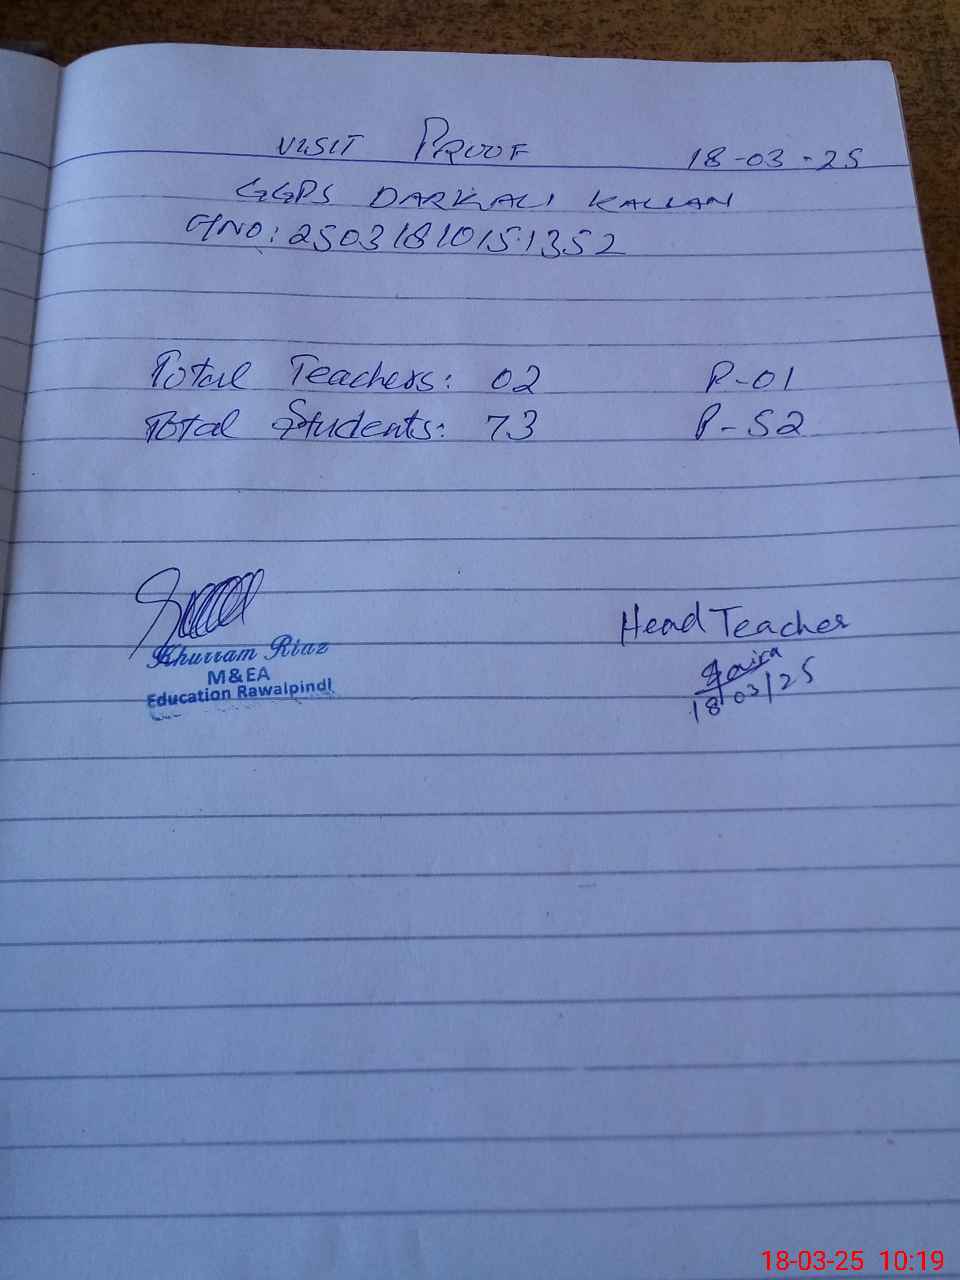 VISIT PROOF 18-03-25
GGPS DARKALI KALLAN
G/NO: 25031810151352
Total Teachers: 02 P-01
Total Students: 73 P-52
Khurram Riaz
M&EA
Education Rawalpindi
Head Teacher
18/03/25
18-03-25 10:19